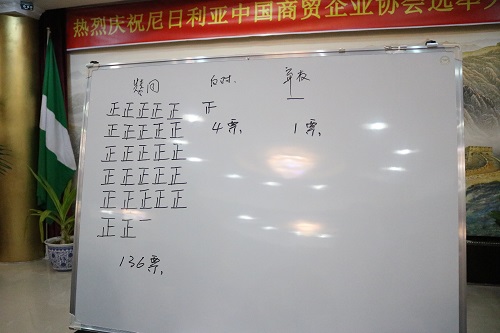 热烈庆祝尼日利亚中国商贸企业协会选举大
赞同 反对 弃权
正正正正正 正 一
正正正正正 4票 1票
正正正正正
正正正正正
正正正正正
正正一
136票